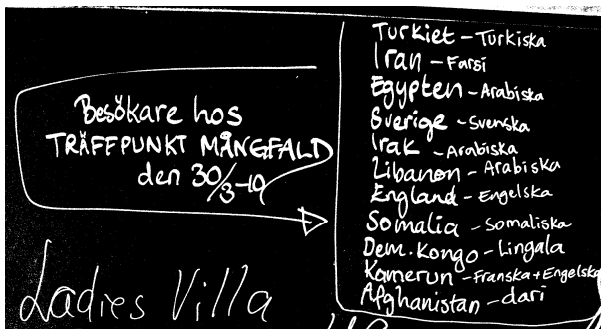 Besökare hos
TRÄFFPUNKT MÅNGFALD
den 30/3-19
Turkiet - Turkiska
Iran - Farsi
Egypten - Arabiska
Sverige - Svenska
Irak - Arabiska
Libanon - Arabiska
England - Engelska
Somalia - Somaliska
Dem. Kongo - Lingala
Kamerun - Franska + Engelska
Afghanistan - dari
Ladies Villa